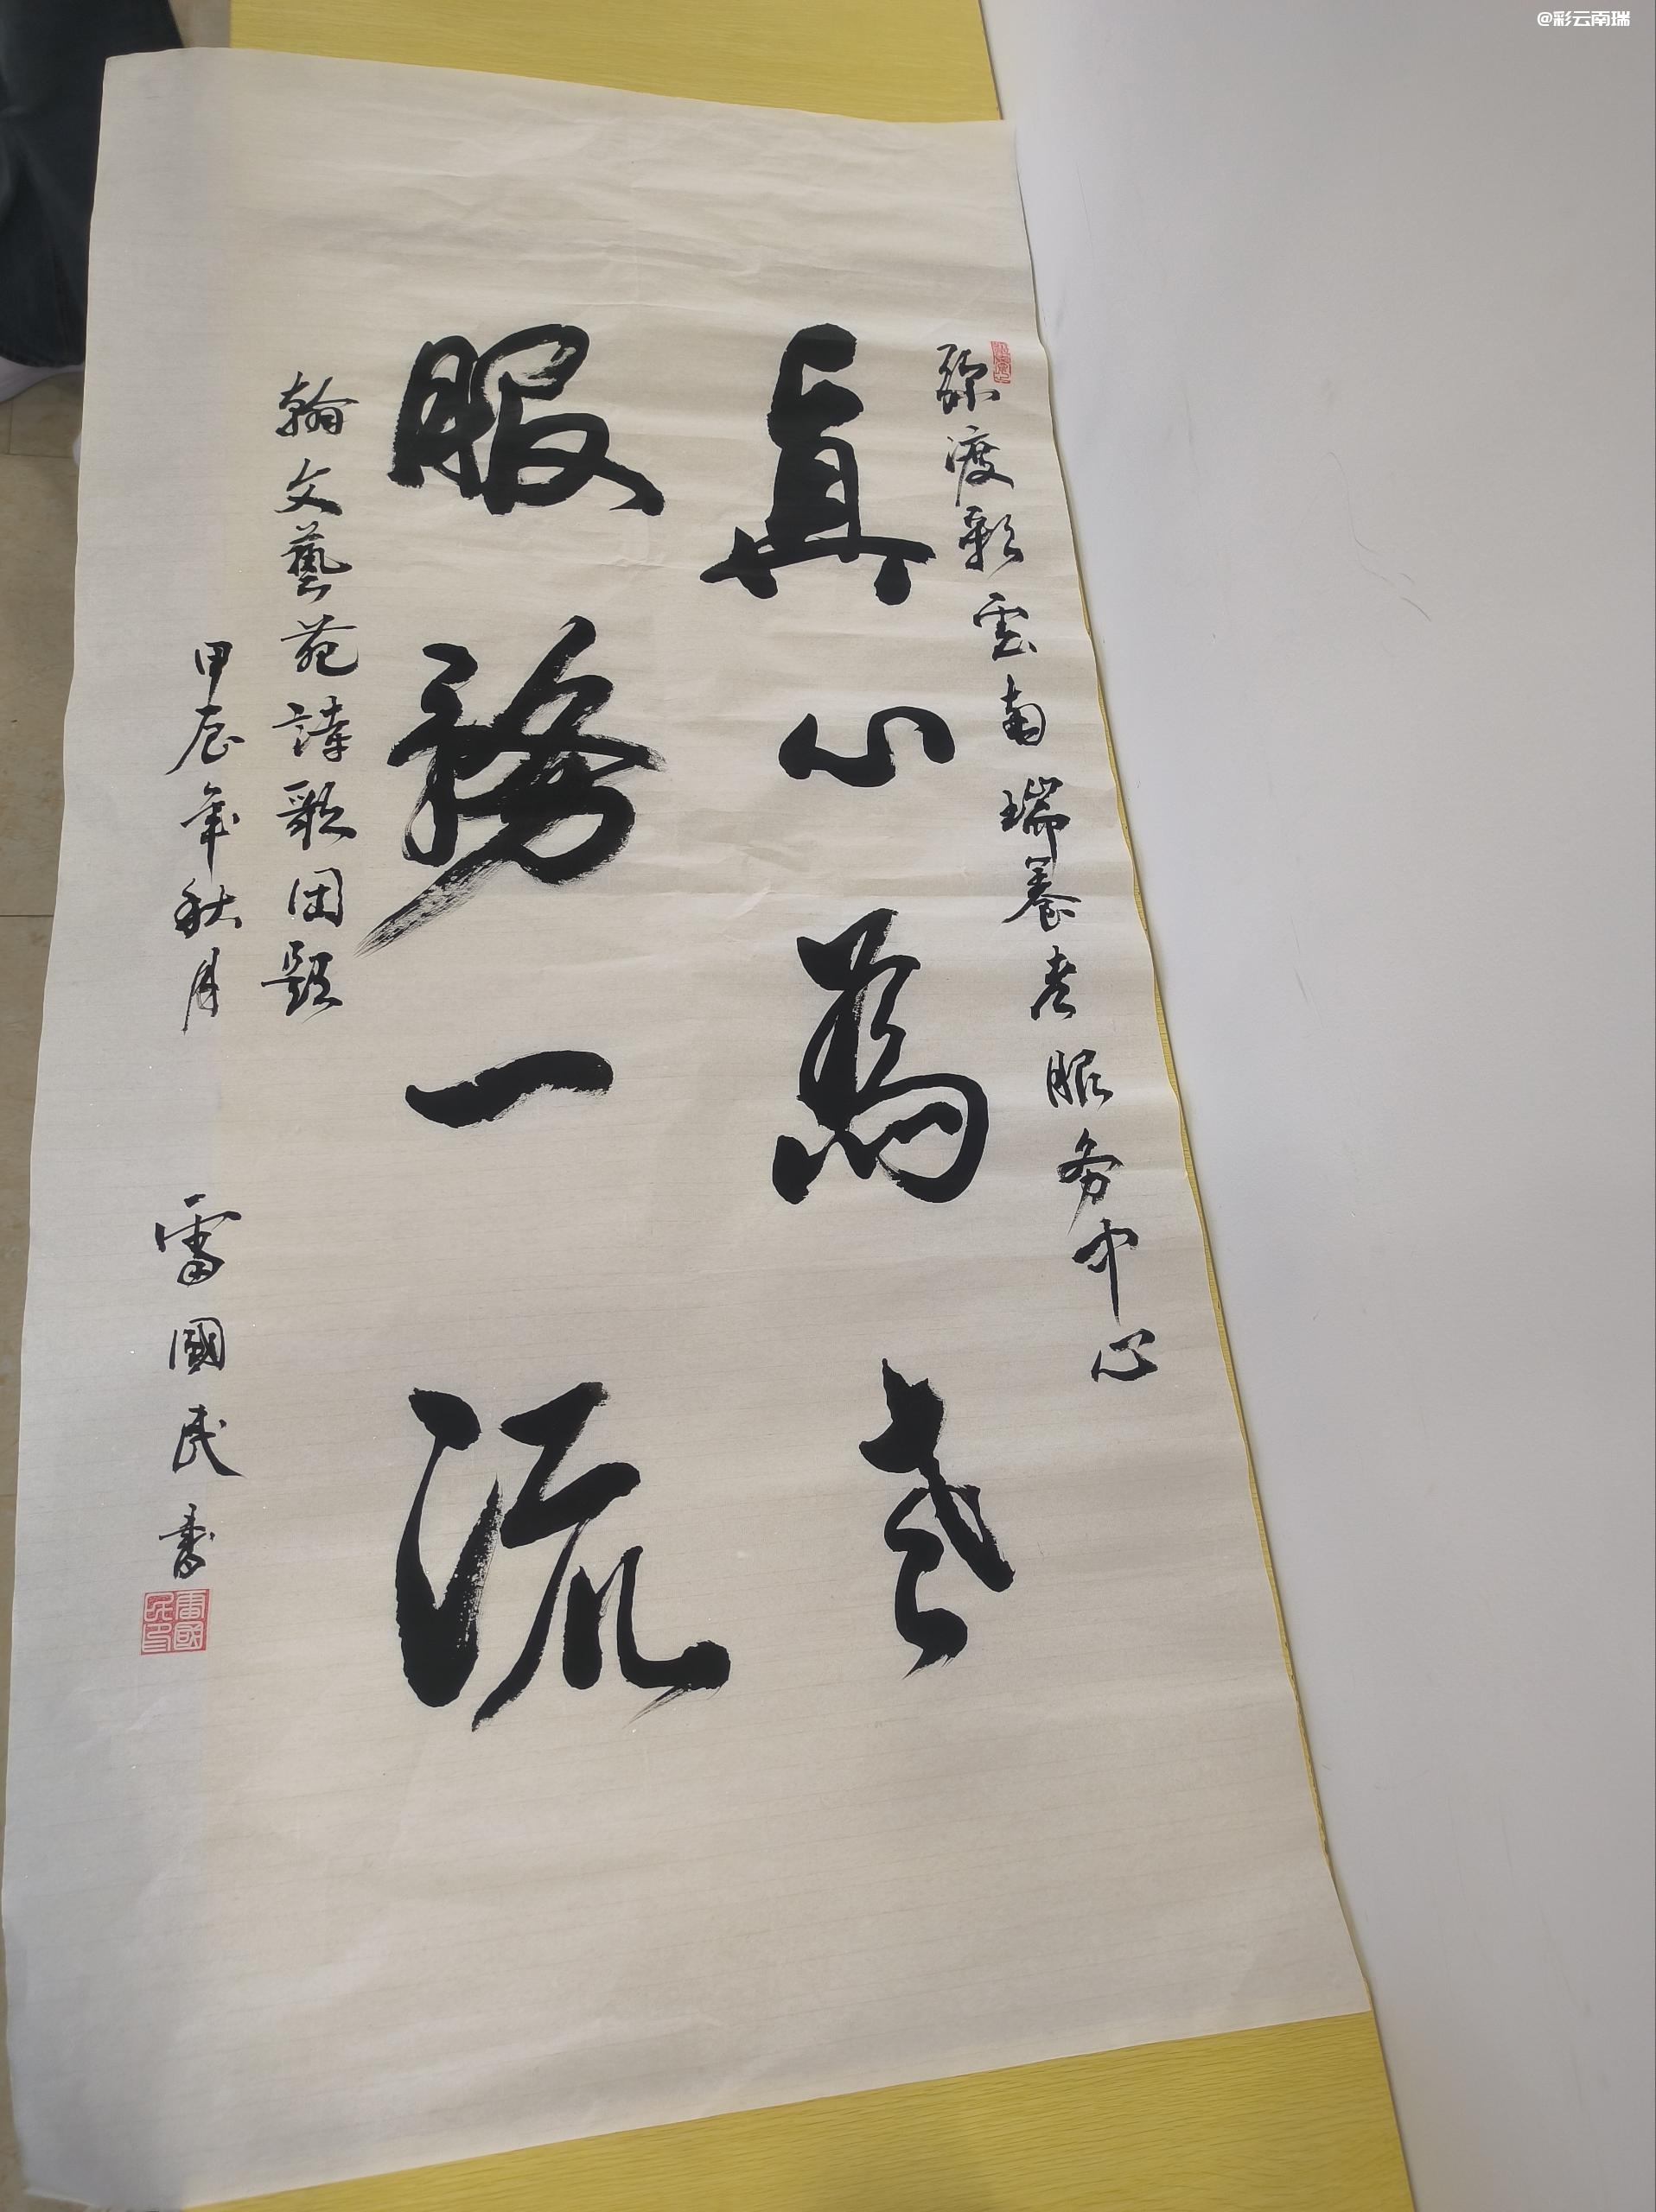 @彩云南瑞
弥渡彩雲南瑞養老服务中心
真心為老
服務一流
翰文藝苑詩歌团題
甲辰年秋月
雷國民書
雷國民印